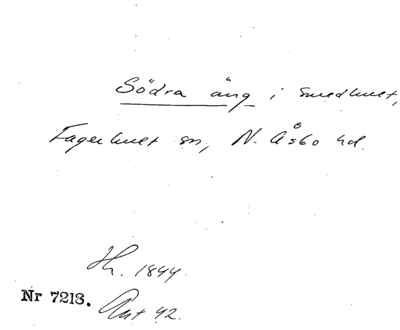 Södra äng i Smedhult,
Fagerhult sn, N. Åsbo hd.
Hh. 1844.
Nr 7213. Ant 42.